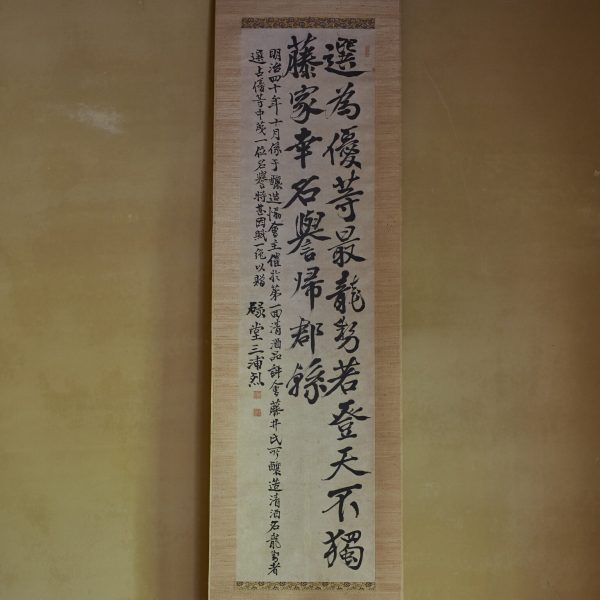 選為優等最龍勢若登天不獨
藤家幸名譽帰郡縣
明治四十年十月係于釀造協會主催於第一回清酒品評會藤井氏所釀造清酒名龍勢者
選占優等中茂一位名譽特甚因賦一絶以贈
碌堂三浦烈